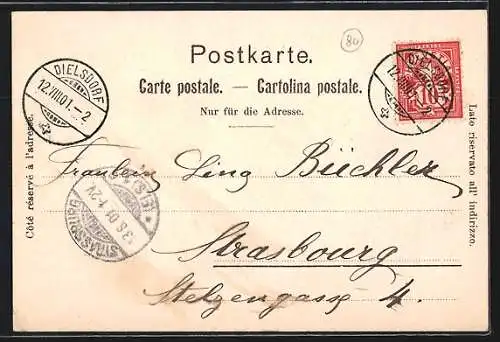 80
Postkarte.
Carte postale. — Cartolina postale.
Nur für die Adresse.
Côté réservé à l'adresse.
Lato riservato all' indirizzo.
DIELSDORF
12.VIII.01.-2
DIELSDORF
12.VIII.01.-2
10
Fräulein Lina Büchler
STRASSBURG
13.8.01.
Strasbourg
Stelzengasse 4.